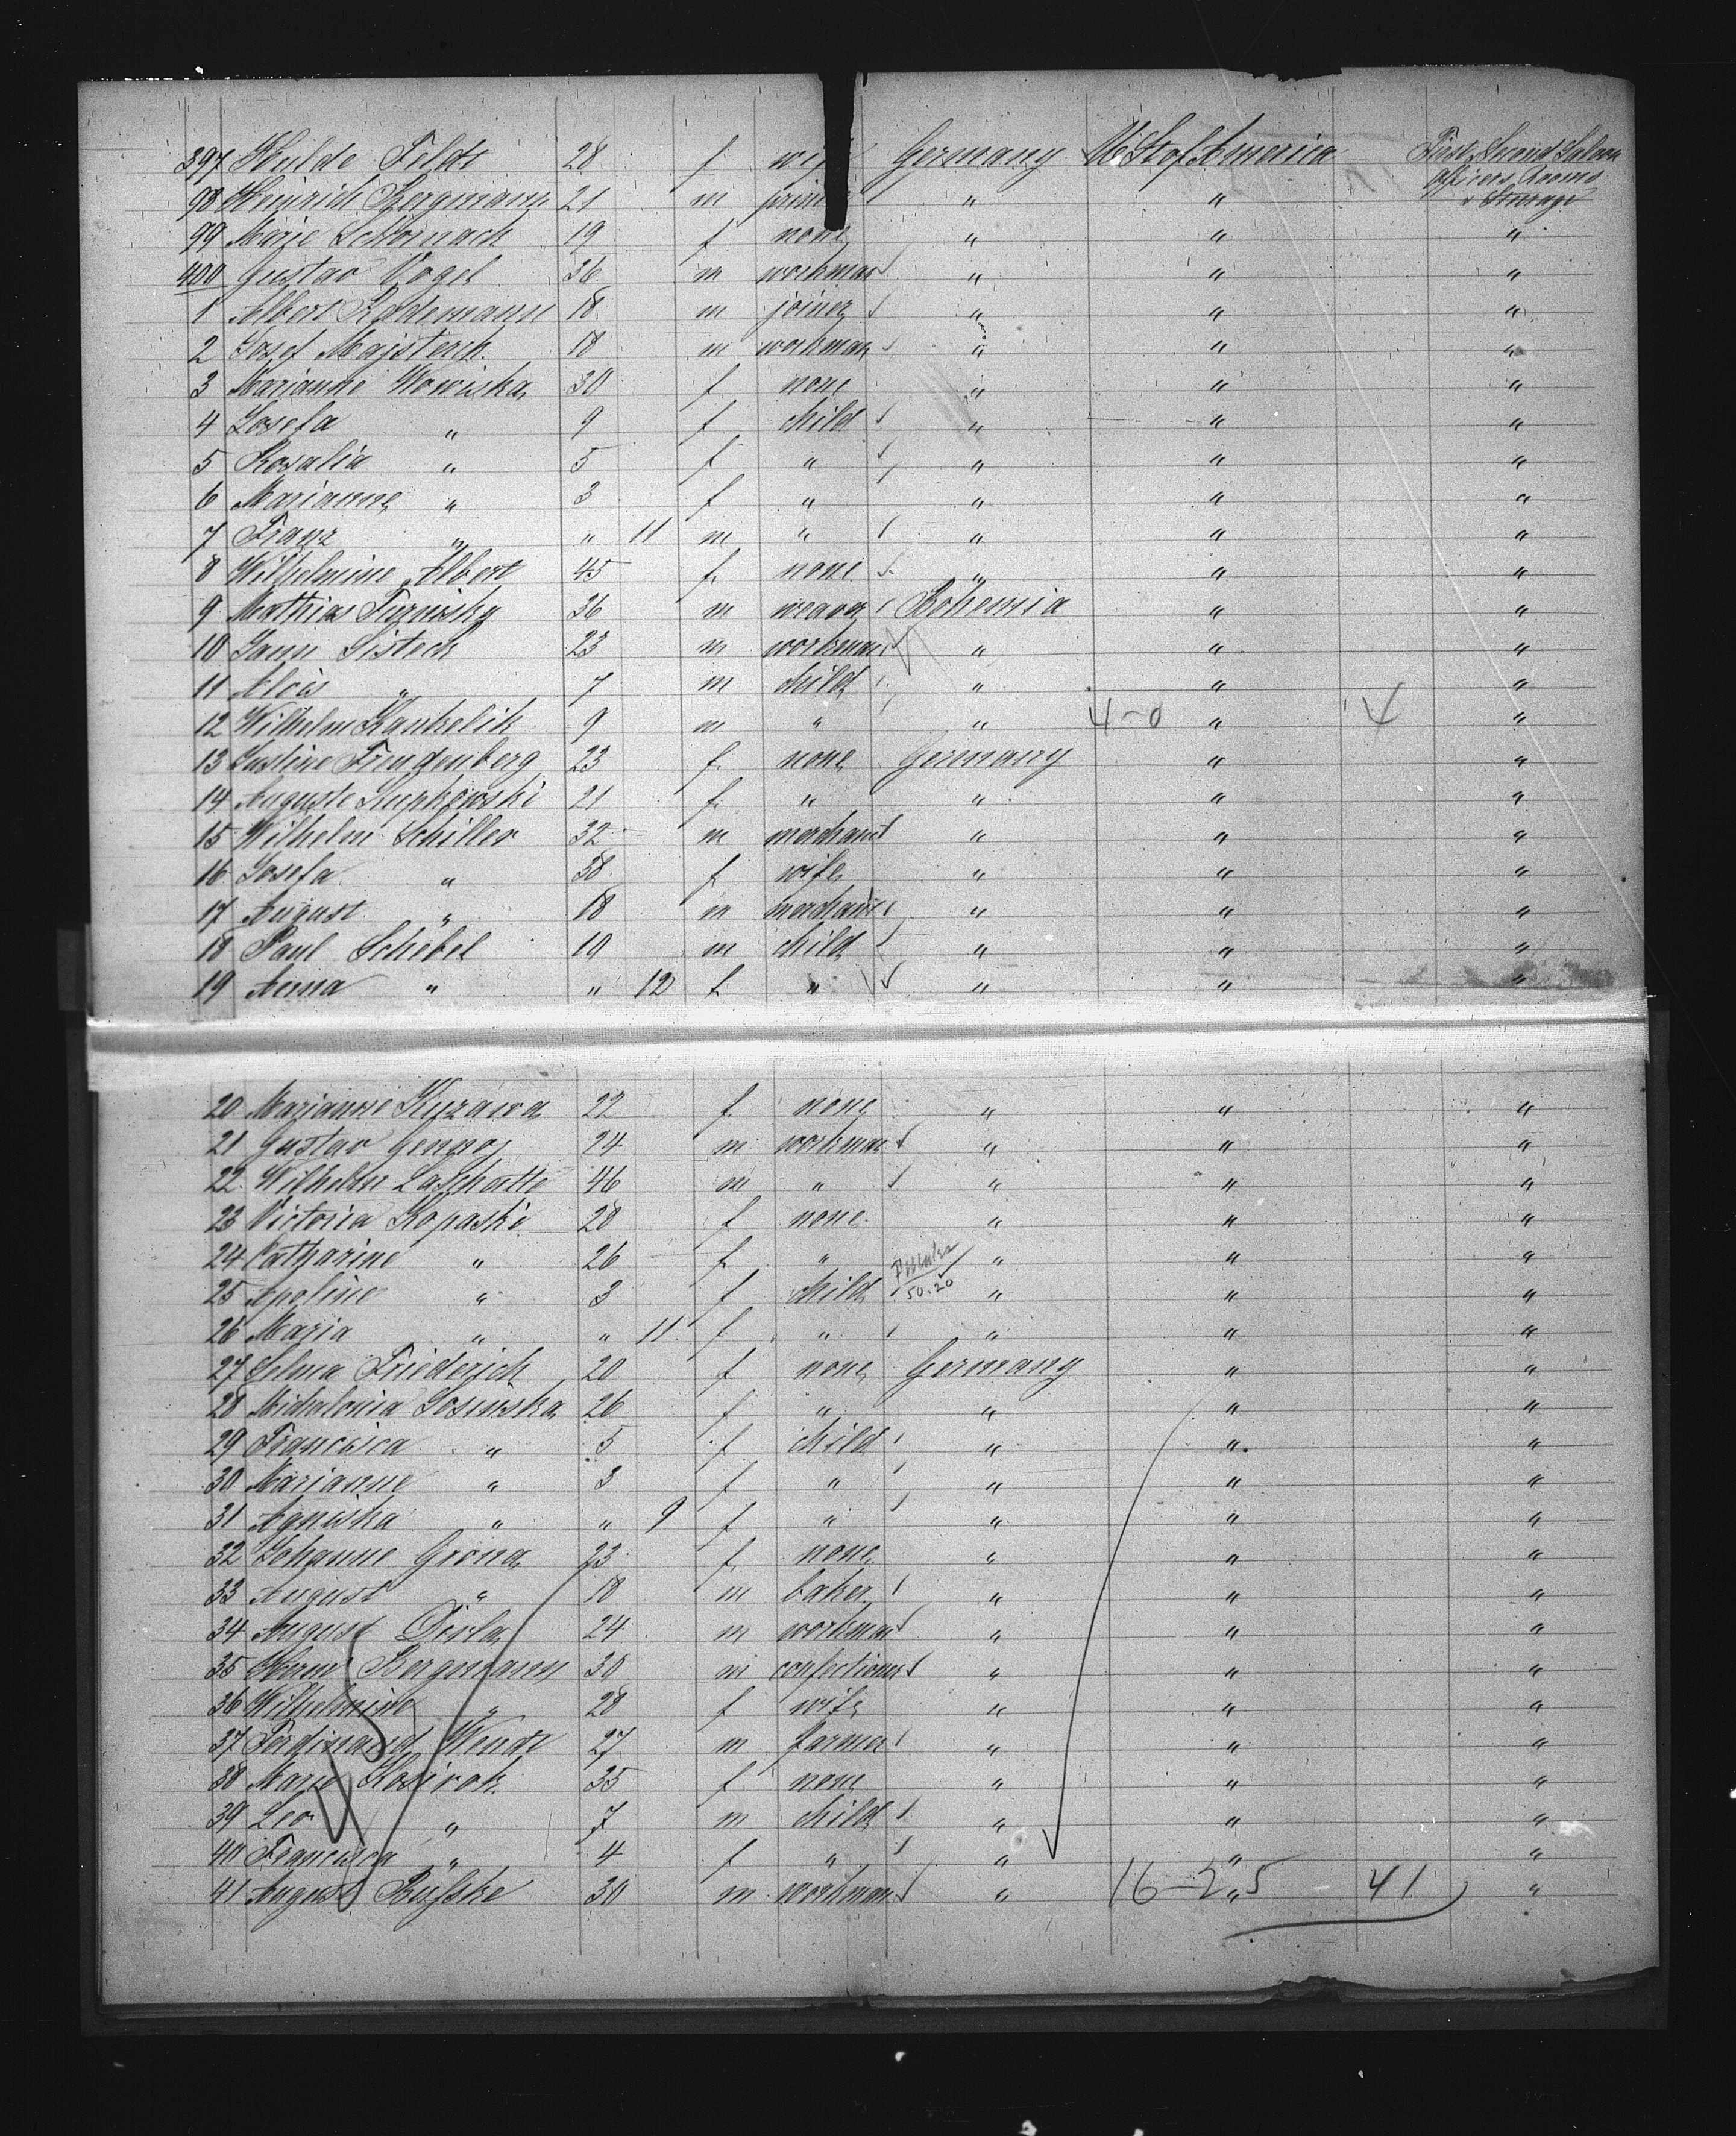 397 Hulde Feldt 28 f wife Germany U St of America First, Second Saloon
officers, rooms
98 Heinrich Bergmann 21 m joiner " " & Steerage
99 Marie Schornack 19 f none " " "
400 Gustav Vogel 36 m workman " " "
1 Albert Rademann 18 m joiner " " "
2 Josef Majsterek 18 m workman " " "
3 Marianne Nowiska 30 f none " " "
4 Josefa " 9 f child " " "
5 Rosalia " 5 f " " " "
6 Marianne " 3 f " " " "
7 Franz " " 11 m " " " "
8 Wilhelmine Albert 45 f none " " "
9 Mathias 36 m weaver Bohemia " "
10 Jann Sistech 23 m workman " " "
11 Alois " 7 m child " " "
12 Wilhelm 9 m " " 4-0 " 4 "
13 Justine Freudenberg 23 f none Germany " "
14 Auguste Lupkowski 21 f " " " "
15 Wilhelm Schiller 32 m merchant " " "
16 Josefa " 38 f wife " " "
17 August " 18 m merchant " " "
18 Paul Schebel 10 m child " " "
19 Anna " " 12 f " " " "
20 Marianne Kuzawa 22 f none " " "
21 Gustav 24 m workman " " "
22 Wilhelm 46 m " " " "
23 Victoria Kopaski 28 f none " " "
24 Catharine " 26 f " " " "
25 Apoline " 3 f child 50.20 " " "
26 Maria " " 11 f " " " "
27 Selma Friederich 20 f none Germany " "
28 Michalonia Sosinska 26 f " " " "
29 Francisca " 5 f child " " "
30 Marianne " 3 f " " " "
31 Agniska " " 9 f " " " "
32 Johanne Grona 23 f none " " "
33 August " 18 m baker " " "
34 August Dirla 24 m workman " " "
35 Herm. Bergmann 30 m confectioner " " "
36 Wilhelmine " 28 f wife " " "
37 Ferdinand Wendt 27 m farmer " " "
38 Marie 35 f none " " "
39 Leo " 7 m child " " "
40 Francisca " 4 f " " " "
41 August Russke 30 m workman " 16-25 " 41 "